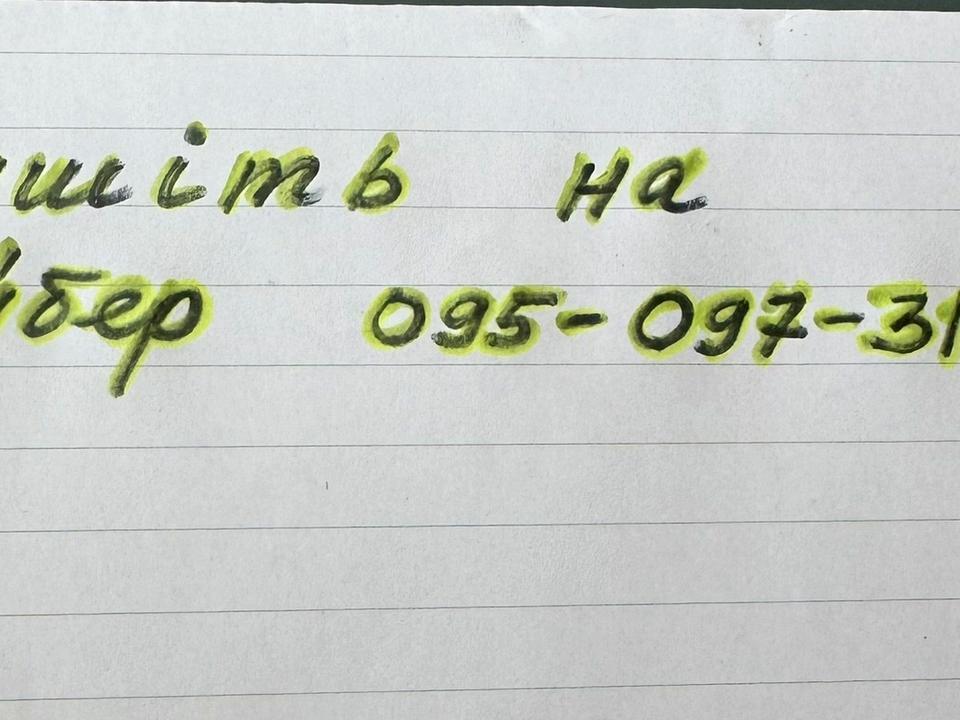 шіть на
бер 095-097-31